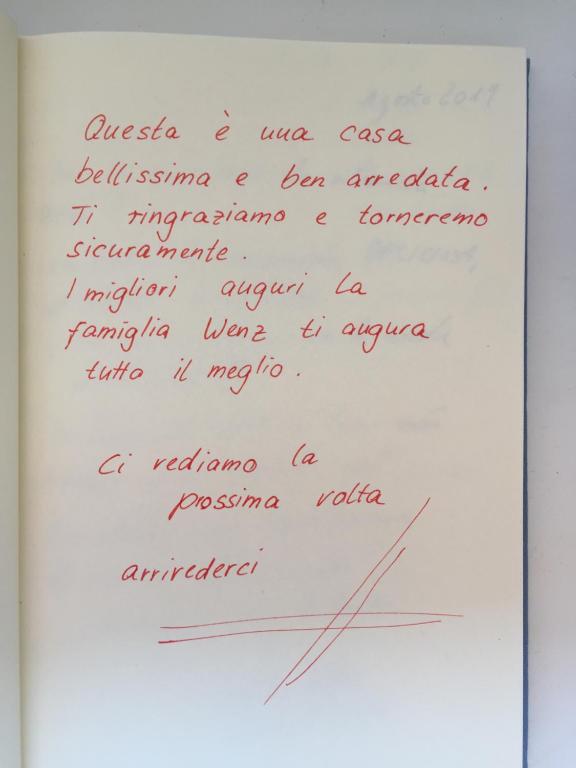 Agosto 2019
Questa è una casa
bellissima e ben arredata.
Ti ringraziamo e torneremo
sicuramente.
I migliori auguri La
famiglia Wenz ti augura
tutto il meglio.
Ci vediamo la
prossima volta
arrivederci